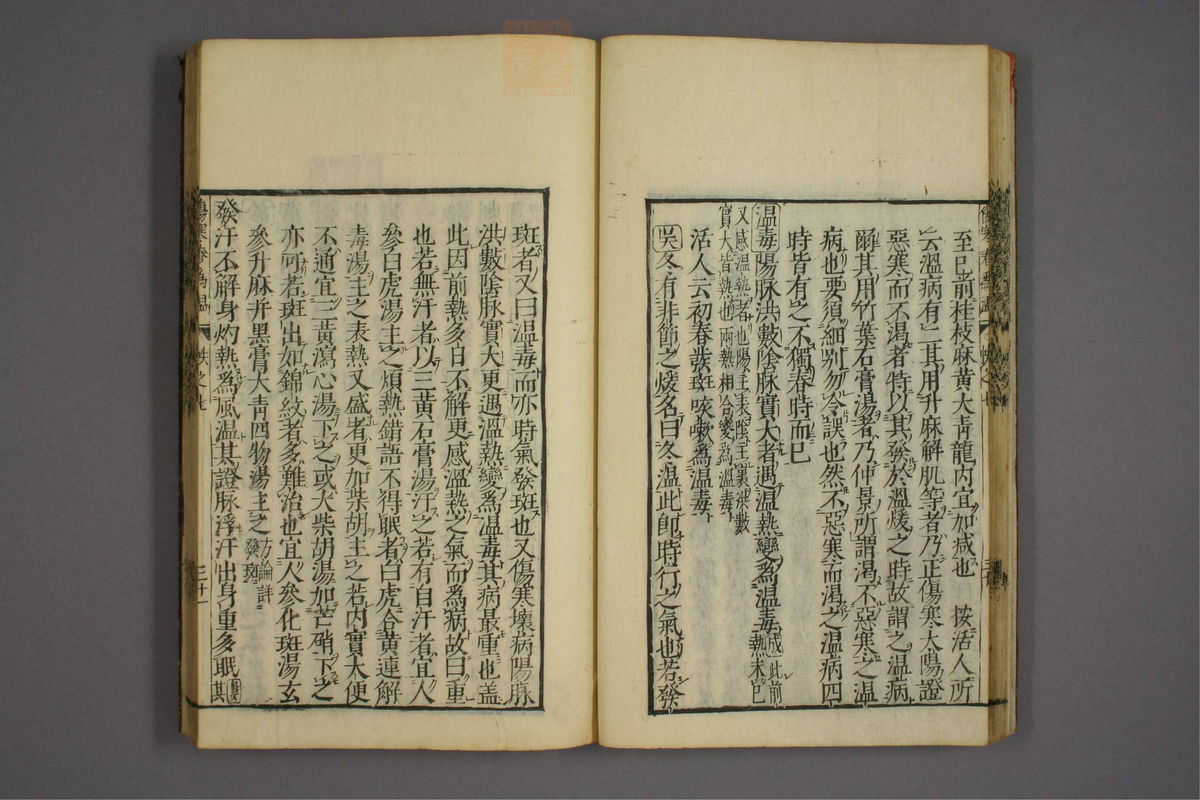 至已前桂枝麻黃大青龍內宜加减也 按活人所
云溫病有二其用升麻解肌等者乃正傷寒大陽證
惡寒而不渴者特以其發於溫煖之時故謂之溫病
爾其用竹葉石膏湯者乃仲景所謂渴不惡寒之溫
病也要須細别勿令誤也然不惡寒而渴之溫病四
時皆有之不獨春時而已
溫毒陽脉洪數陰脉實大者遇溫熱變爲溫毒成此前熱未已
又感溫熱者也陽主表陰主裏洪數
實大皆熱也兩熱相合變爲溫毒
活人云初春發斑咳嗽爲溫毒
吳冬有非節之煖名曰冬溫此卽時行之氣也若發
傷寒
帙之七
斑者又曰溫毒而亦時氣發斑也又傷寒壞病陽脉
洪數陰脉實大更遇溫熱變爲溫毒其病最重也盖
此因前熱多日不解更感溫熱之氣而爲病故曰重
也若無汗者以三黃石膏湯汗之若有自汗者宜人
參白虎湯主之煩熱錯語不得眠者白虎合黃連解
毒湯主之表熱又盛者更加柴胡主之若內實大便
不通宜三黃瀉心湯下之或大柴胡湯加芒硝下之
亦可若斑出如錦紋者多難治也宜人參化斑湯玄
參升麻并黑膏大青四物湯主之方論詳發斑
發汗不解身灼熱爲風溫其證脉浮汗出身重多眠
傷寒春爲溫
帙之七
三十一